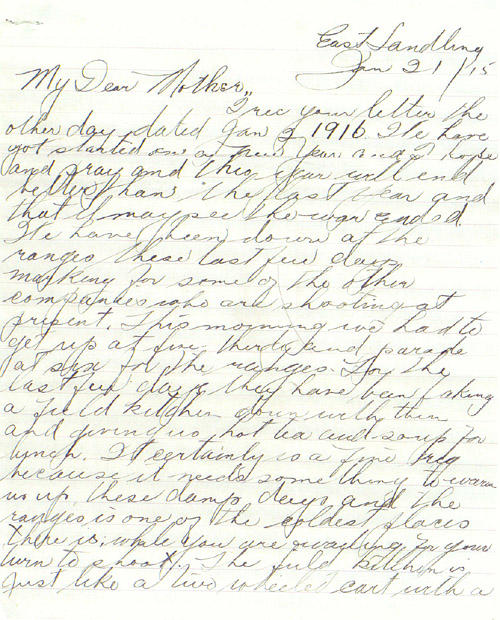 East Sandling
Jan 21/15
My Dear Mother,,
I rec your letter the
other day dated Jan 2 1916. We have
got started on a new year now I hope
and pray and this year will end
better than the last year and
that it may see the war ended.
We have been down at the
ranges these last few days
marking for some of the other
companies who are shooting at
present. This morning we had to
get up at five thirty and parade
at six for the ranges. For the
last few days they have been taking
a field kitchen down with them
and giving us hot tea and soup for
lunch. It certainly is a fine
because it needs something to warm
us up these damp days and the
ranges is one of the coldest places
there is while you are waiting for your
turn to shoot. The field kitchen is
just like a two wheeled cart with a